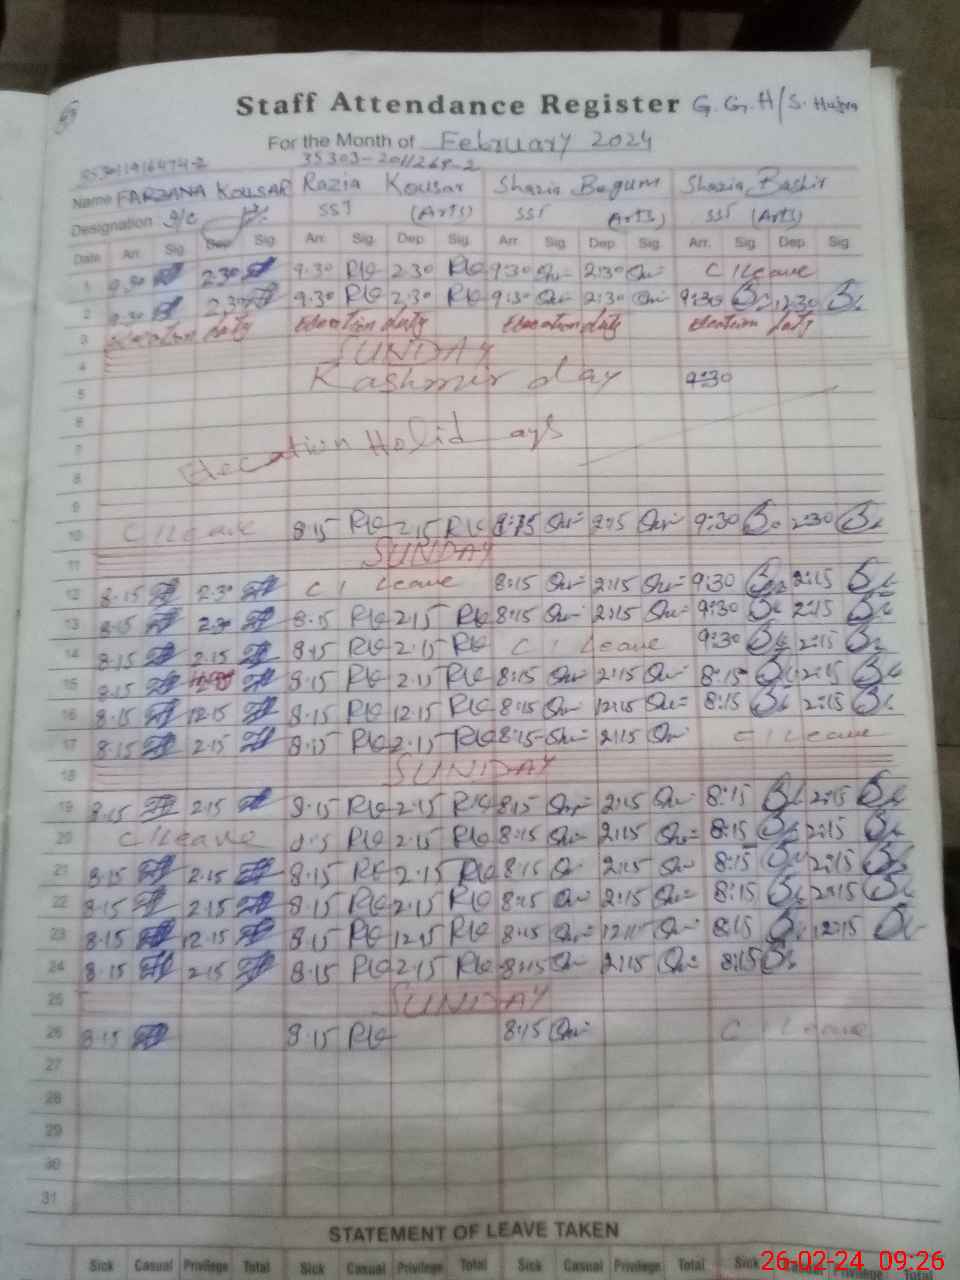 Staff Attendance Register G.G.H/S. Hujra
For the Month of February 2024
35303-2011268-2
Name FARZANA KOUSAR Razia Kousar Shazia Begum Shazia Bashir
Designation I/C SST (Arts) SST (Arts) SST (Arts)
Date Arr. Sig. Dep. Sig. Arr. Sig. Dep. Sig. Arr. Sig. Dep. Sig. Arr. Sig. Dep. Sig.
1 9.30 2.30 9.30 2.30 9:30 2:30 C/Leave
2 9.30 2.30 9.30 2.30 9:30 2:30 9:30 2:30
3 Elecation duty Elecation duty Elecation duty Elecation duty
4 SUNDAY
5 Kashmir day 9:30
6
7 Elecation Holidays
8
9
10 C/Leave 8.15 2.15 8:15 2:15 9:30 2:30
11 SUNDAY
12 8.15 2.30 C/Leave 8:15 2:15 9:30 2:15
13 8.15 2.30 8.15 2.15 8:15 2:15 9:30 2:15
14 8.15 2.15 8.15 2.15 C/Leave 9:30 2:15
15 8.15 8.15 2.15 8:15 2:15 8:15 2:15
16 8.15 12.15 8.15 12.15 8:15 12:15 8:15 2:15
17 8.15 2.15 8.15 2.15 8:15 2:15 C/Leave
18 SUNDAY
19 8.15 2.15 8.15 2.15 8:15 2:15 8:15 2:15
20 C/Leave 8.15 2.15 8:15 2:15 8:15 2:15
21 8.15 2.15 8.15 2.15 8:15 2:15 8:15 2:15
22 8.15 2.15 8.15 2.15 8:15 2:15 8:15 2:15
23 8.15 12.15 8.15 12.15 8:15 12:15 8:15 12:15
24 8.15 2.15 8.15 2.15 8:15 2:15 8:15
25 SUNDAY
26 8.15 8.15 8:15 C/Leave
27
28
29
30
31
STATEMENT OF LEAVE TAKEN
Sick Casual Privilege Total Sick Casual Privilege Total Sick Casual Privilege Total Sick Casual Privilege Total
26-02-24 09:26